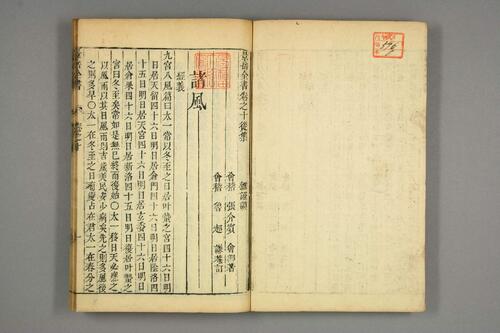 景岳全書卷之十從集
雜證謨
會稽 張介賓 會卿著
會稽 魯超 謙菴訂
諸風
經義
九宮八風篇曰太一常以冬至之日居叶蟄之宮四十六日明
日居天留四十六日明日居倉門四十六日明日居陰洛四
十五日明日居天宮四十六日明日居玄委四十六日明日
居倉果四十六日明日居新洛四十五日明日復居叶蟄之
宮曰冬至矣常如是無已終而復始○太一移日天必應之
以風雨以其日風雨則吉歲美民安少病矣先之則多雨後
之則多旱○太一在冬至之日有變占在君太一在春分之